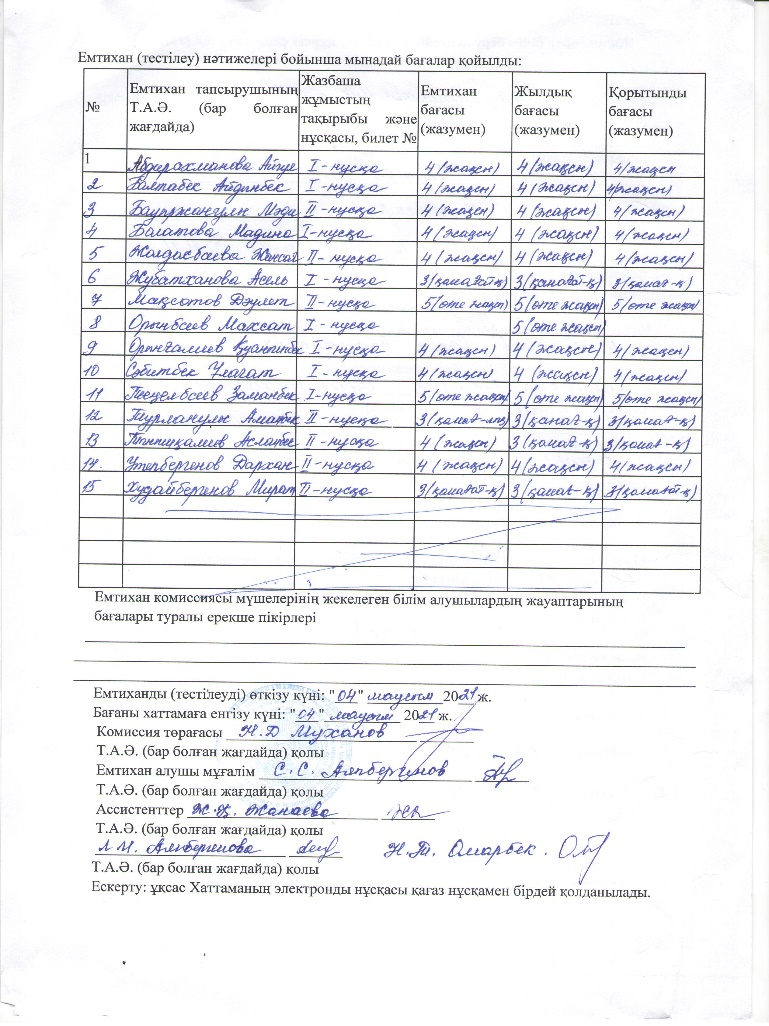 Емтихан (тестілеу) нәтижелері бойынша мынадай бағалар қойылды:
№ Емтихан тапсырушының Т.А.Ә. (бар болған жағдайда) Жазбаша жұмыстың тақырыбы және нұсқасы, билет № Емтихан бағасы (жазумен) Жылдық бағасы (жазумен) Қорытынды бағасы (жазумен)
1 Абдирахманова Айгуе І - нұсқа 4 (жақсы) 4 (жақсы) 4 (жақсы
2 Айдынбек І - нұсқа 4 (жақсы) 4 (жақсы) 4 (жақсы)
3 Бауыржанұлы Мәди ІІ - нұсқа 4 (жақсы) 4 (жақсы) 4 (жақсы)
4 Болатова Мадина І - нұсқа 4 (жақсы) 4 (жақсы) 4 (жақсы)
5 Жолдасбаева ІІ - нұсқа 4 (жақсы) 4 (жақсы) 4 (жақсы)
6 Жубатханова Асель І - нұсқа 3 (қанағат-қ) 3 (қанағат-қ) 3 (қанағ-қ)
7 Мақсотов Дәулет ІІ - нұсқа 5 (өте жақсы) 5 (өте жақсы) 5 (өте жақсы)
8 Орынбаев Махсат І - нұсқа 5 (өте жақсы)
9 Орынғалиев І - нұсқа 4 (жақсы) 4 (жақсы) 4 (жақсы)
10 Сәбитбек Ұлағат І - нұсқа 4 (жақсы) 4 (жақсы) 4 (жақсы)
11 Заманбек І - нұсқа 5 (өте жақсы) 5 (өте жақсы) 5 (өте жақсы)
12 Тұрланұлы ІІ - нұсқа 3 3 (қанағ-қ) 3 (қанағ-қ)
13 ІІ - нұсқа 4 (жақсы) 3 (қанағ-қ) 3 (қанағ-қ)
14. Утепбергенов Дархан ІІ - нұсқа 4 (жақсы) 4 (жақсы) 4 (жақсы)
15 Худайбергенов Мират ІІ - нұсқа 3 (қанағат-қ) 3 (қанағ-қ) 3 (қанағат-қ)
Емтихан комиссиясы мүшелерінің жекелеген білім алушылардың жауаптарының
бағалары туралы ерекше пікірлері
Емтиханды (тестілеуді) өткізу күні: "04" маусым 2021 ж.
Бағаны хаттамаға енгізу күні: "04" маусым 2021 ж.
Комиссия төрағасы Н.Д Муханов
Т.А.Ә. (бар болған жағдайда) қолы
Емтихан алушы мұғалім С.С. Аяпбергенов
Т.А.Ә. (бар болған жағдайда) қолы
Ассистенттер Ж.Қ. Жанаева
Т.А.Ә. (бар болған жағдайда) қолы
Н.Т. Омарбек.
Т.А.Ә. (бар болған жағдайда) қолы
Ескерту: ұқсас Хаттаманың электронды нұсқасы қағаз нұсқамен бірдей қолданылады.